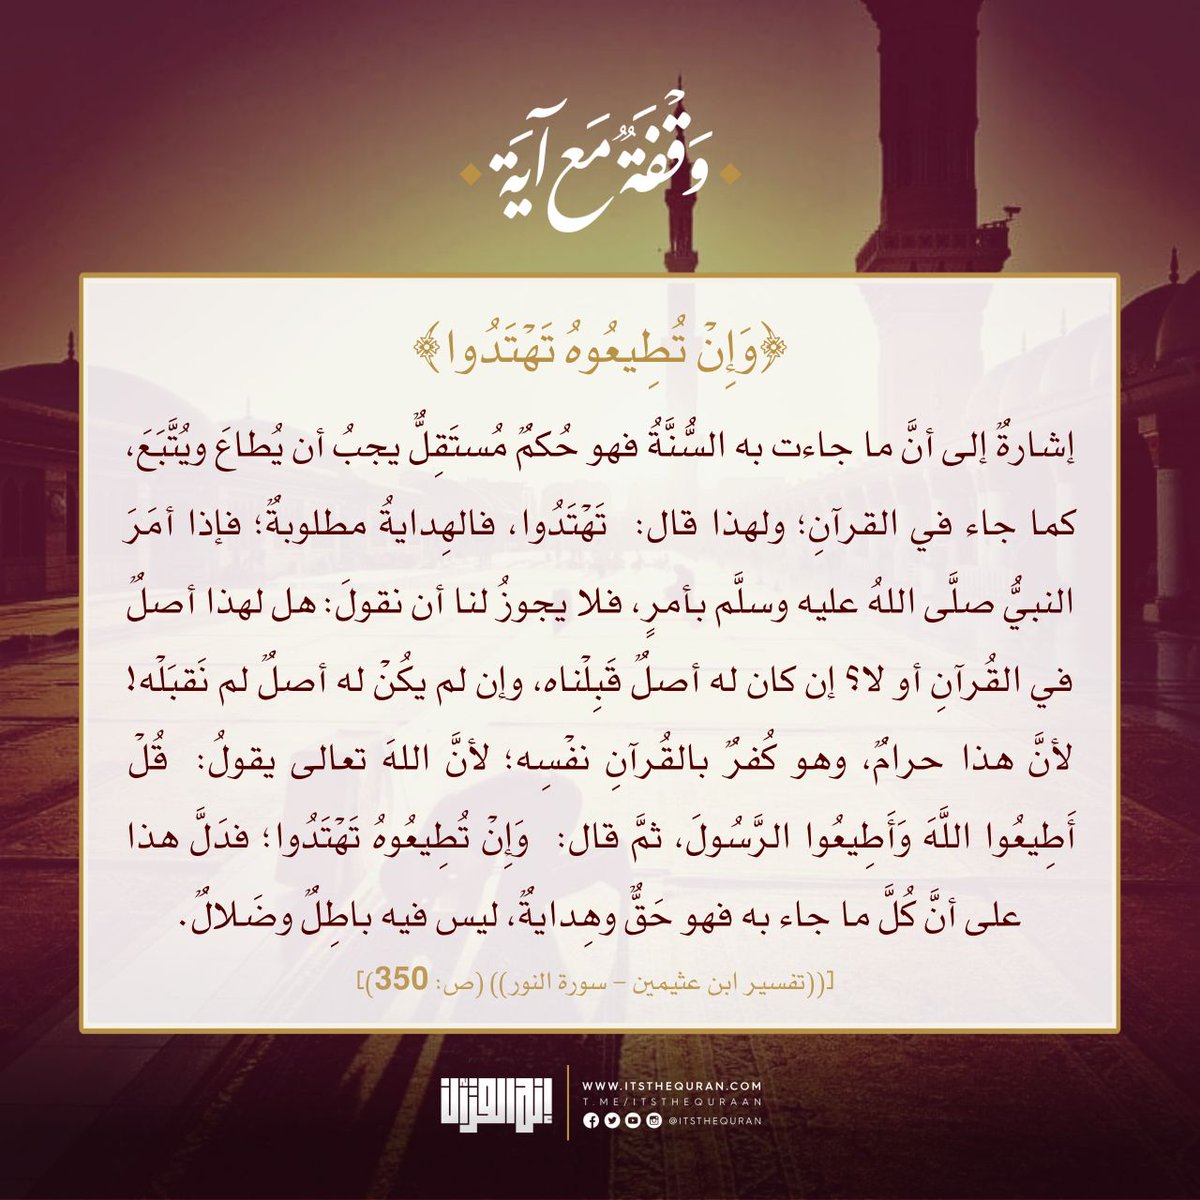 وَقْفَةٌ مَعَ آيَة
﴿وَإِنْ تُطِيعُوهُ تَهْتَدُوا﴾
إشارةٌ إلى أنَّ ما جاءت به السُّنَّةُ فهو حُكمٌ مُستَقِلٌّ يجبُ أن يُطاعَ ويُتَّبَعَ،
كما جاء في القرآنِ؛ ولهذا قال: تَهْتَدُوا، فالهِدايةُ مطلوبةٌ؛ فإذا أمَرَ
النبيُّ صلَّى اللهُ عليه وسلَّم بأمرٍ، فلا يجوزُ لنا أن نقولَ: هل لهذا أصلٌ
في القُرآنِ أو لا؟ إن كان له أصلٌ قَبِلْناه، وإن لم يكُنْ له أصلٌ لم نَقبَلْه!
لأنَّ هذا حرامٌ، وهو كُفرٌ بالقُرآنِ نفْسِه؛ لأنَّ اللهَ تعالى يقولُ: قُلْ
أَطِيعُوا اللَّهَ وَأَطِيعُوا الرَّسُولَ، ثمَّ قال: وَإِنْ تُطِيعُوهُ تَهْتَدُوا؛ فدَلَّ هذا
على أنَّ كُلَّ ما جاء به فهو حَقٌّ وهِدايةٌ، ليس فيه باطِلٌ وضَلالٌ.
[((تفسير ابن عثيمين – سورة النور)) (ص: 350)]
إنه القرآن
WWW.ITSTHEQURAN.COM
T.ME/ITSTHEQURAAN
@ITSTHEQURAN